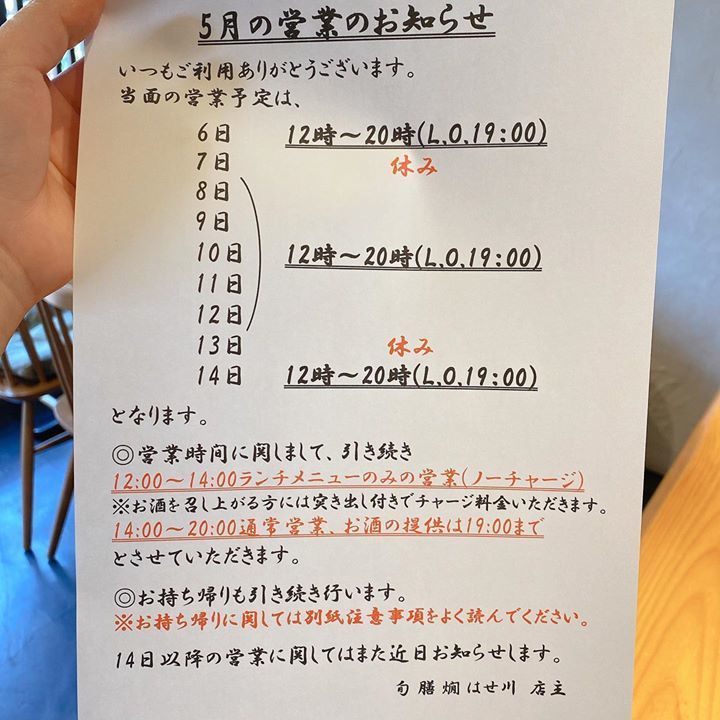 5月の営業のお知らせ
いつもご利用ありがとうございます。
当面の営業予定は、
6日 12時〜20時(L.O.19:00)
7日 休み
8日
9日
10日 12時〜20時(L.O.19:00)
11日
12日
13日 休み
14日 12時〜20時(L.O.19:00)
となります。
◎営業時間に関しまして、引き続き
12:00〜14:00ランチメニューのみの営業(ノーチャージ)
※お酒を召し上がる方には突き出し付きでチャージ料金いただきます。
14:00〜20:00通常営業、お酒の提供は19:00まで
とさせていただきます。
◎お持ち帰りも引き続き行います。
※お持ち帰りに関しては別紙注意事項をよく読んでください。
14日以降の営業に関してはまた近日お知らせします。
旬膳燗はせ川 店主